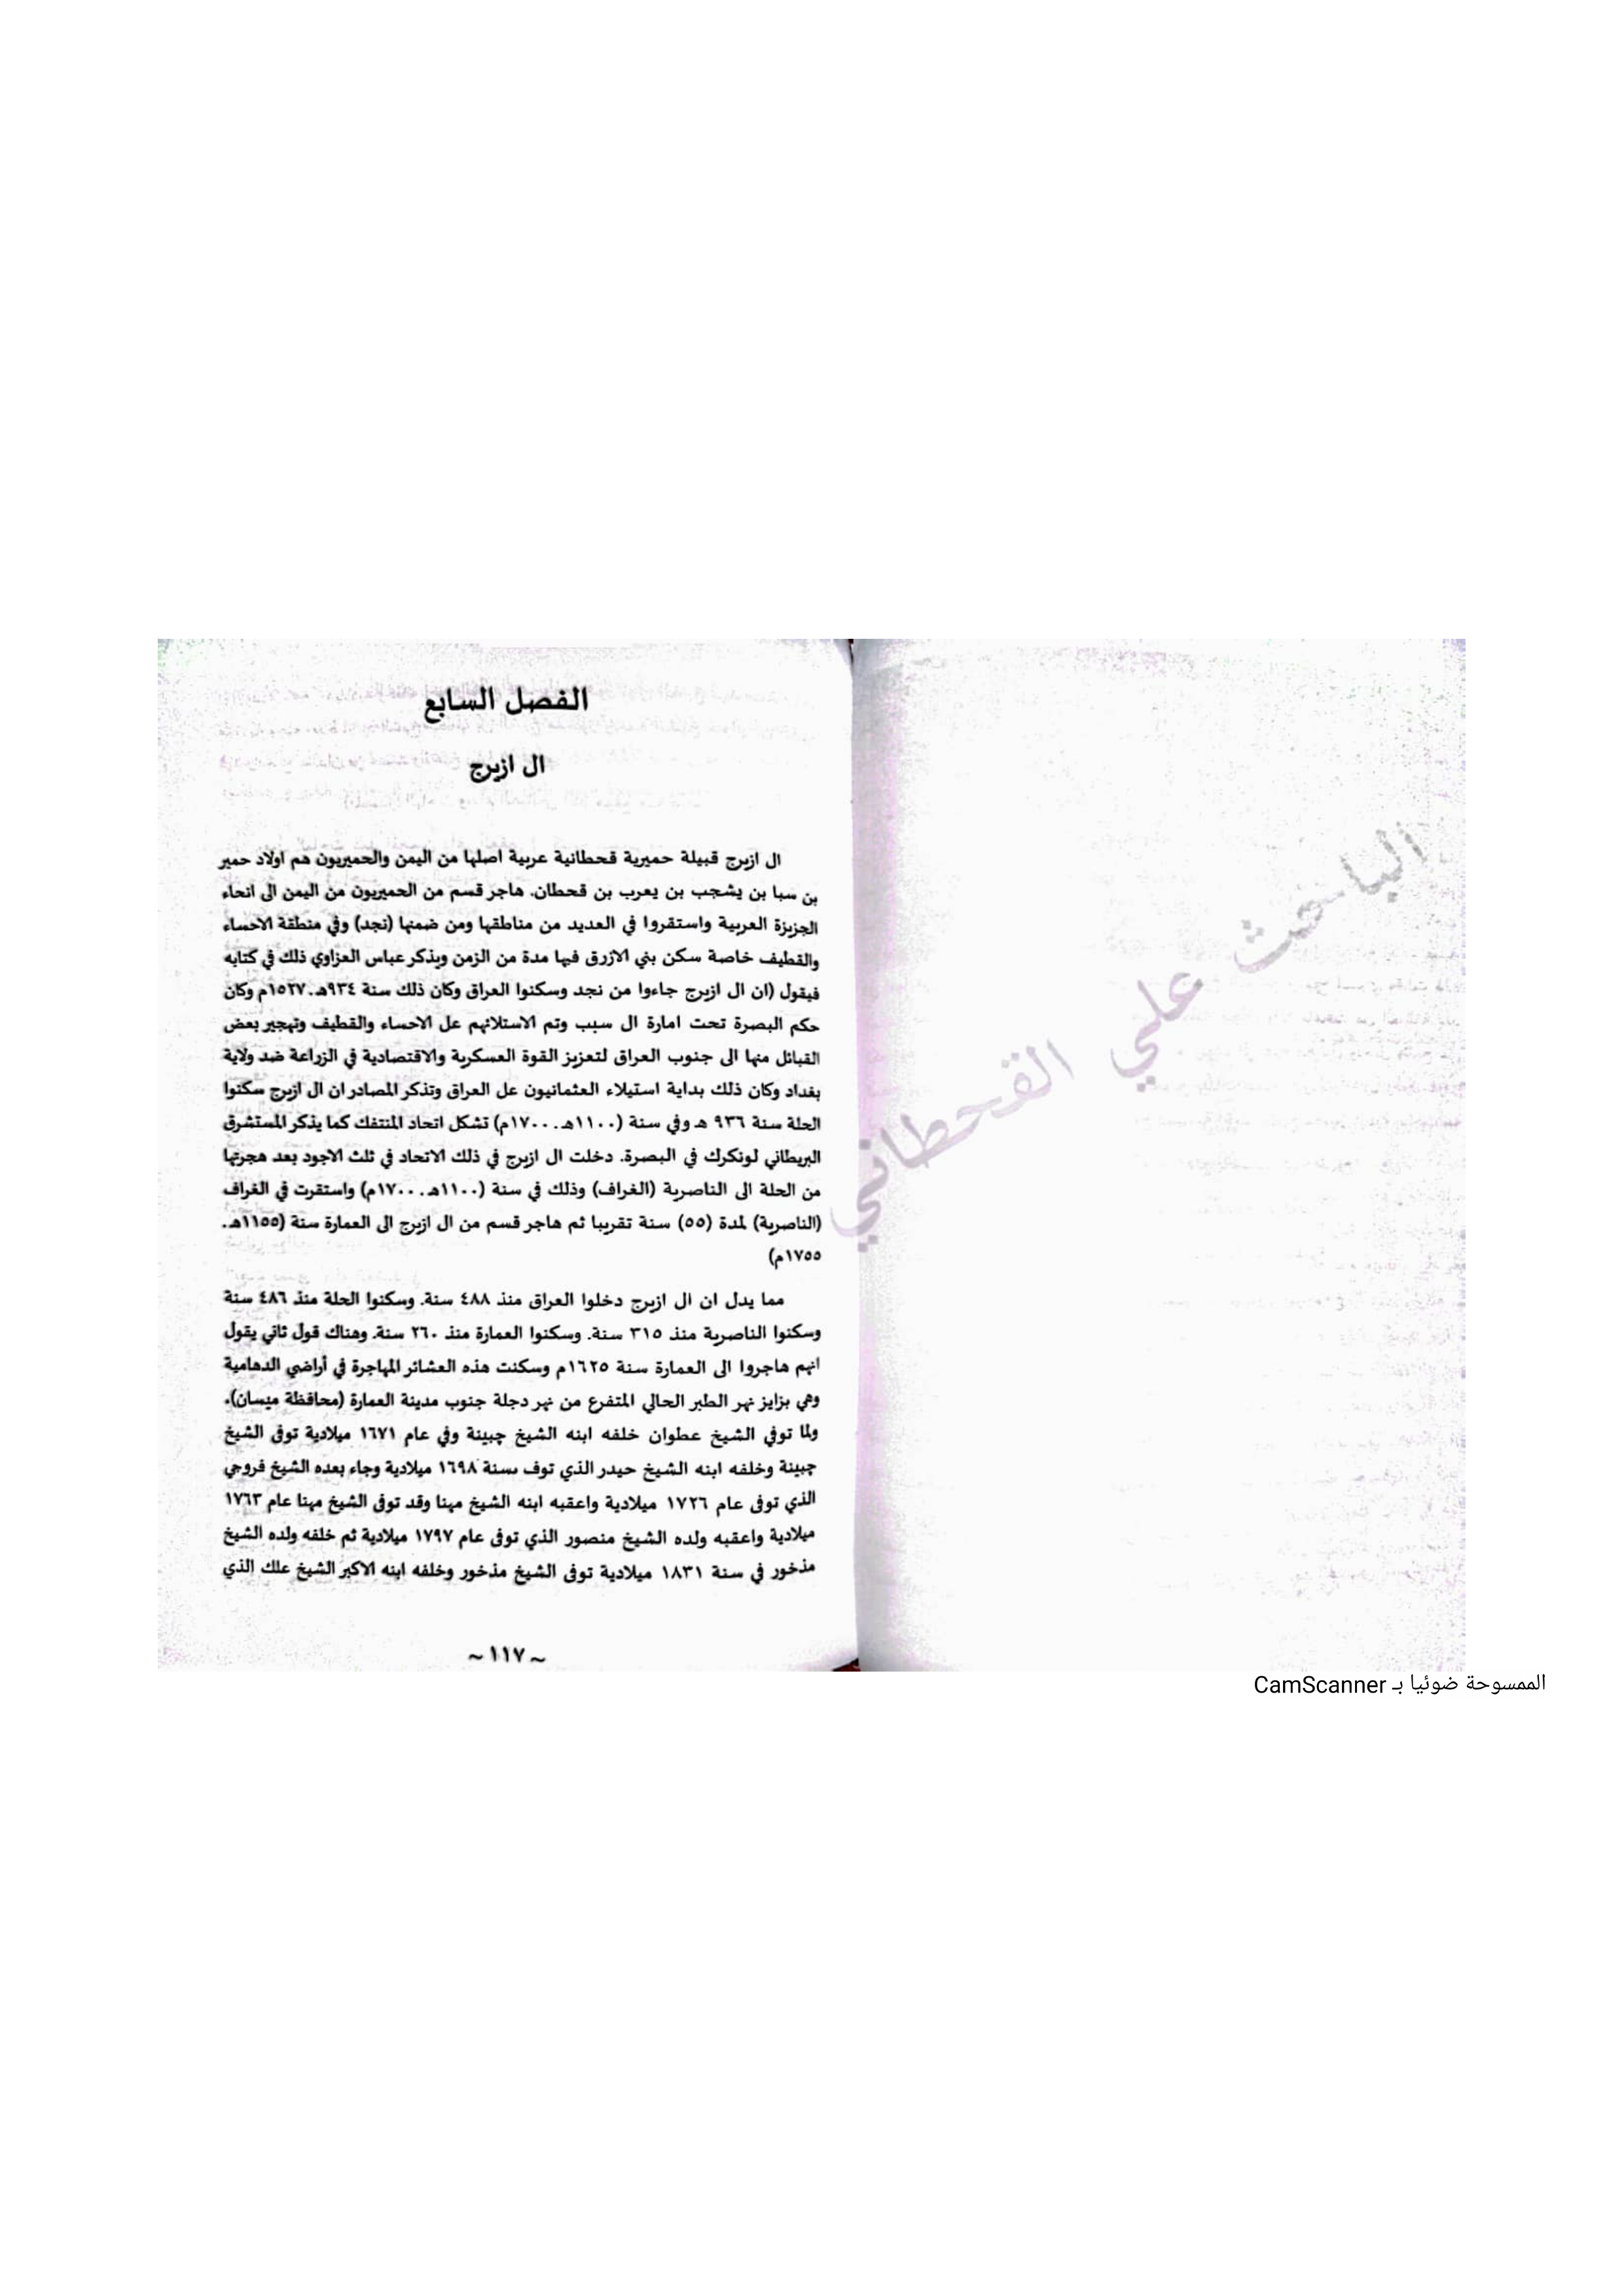 الفصل السابع
ال ازيرج
ال ازيرج قبيلة حميرية قحطانية عربية اصلها من اليمن والحميريون هم اولاد حمير
بن سبا بن يشجب بن يعرب بن قحطان. هاجر قسم من الحميريون من اليمن الى انحاء
الجزيزة العربية واستقروا في العديد من مناطقها ومن ضمنها (نجد) وفي منطقة الاحساء
والقطيف خاصة سكن بني الازرق فيها مدة من الزمن ويذكر عباس العزاوي ذلك في كتابه
فيقول (ان ال ازيرج جاءوا من نجد وسكنوا العراق وكان ذلك سنة ٩٣٤هـ.١٥٢٧م وكان
حكم البصرة تحت امارة ال سبب وتم الاستلائهم عل الاحساء والقطيف وتهجير بعض
القبائل منها الى جنوب العراق لتعزيز القوة العسكرية والاقتصادية في الزراعة ضد ولاية
بغداد وكان ذلك بداية استيلاء العثمانيون عل العراق وتذكر المصادر ان ال ازيرج سكنوا
الحلة سنة ٩٣٦ هـ وفي سنة (١١٠٠هـ.١٧٠٠م) تشكل اتحاد المنتفك كما يذكر المستشرق
البريطاني لونكرك في البصرة. دخلت ال ازيرج في ذلك الاتحاد في ثلث الاجود بعد هجرتها
من الحلة الى الناصرية (الغراف) وذلك في سنة (١١٠٠هـ.١٧٠٠م) واستقرت في الغراف
(الناصرية) لمدة (٥٥) سنة تقريبا ثم هاجر قسم من ال ازيرج الى العمارة سنة (١١٥٥هـ.
١٧٥٥م)
مما يدل ان ال ازيرج دخلوا العراق منذ ٤٨٨ سنة. وسكنوا الحلة منذ ٤٨٦ سنة
وسكنوا الناصرية منذ ٣١٥ سنة. وسكنوا العمارة منذ ٢٦٠ سنة. وهناك قول ثاني يقول
انهم هاجروا الى العمارة سنة ١٦٢٥م وسكنت هذه العشائر المهاجرة في أراضي الدهامية
وهي بزايز نهر الطبر الحالي المتفرع من نهر دجلة جنوب مدينة العمارة (محافظة ميسان).
ولما توفي الشيخ عطوان خلفه ابنه الشيخ چبينة وفي عام ١٦٧١ ميلادية توفى الشيخ
چبينة وخلفه ابنه الشيخ حيدر الذي توف بسنة ١٦٩٨ ميلادية وجاء بعده الشيخ فروچي
الذي توفى عام ١٧٢٦ ميلادية واعقبه ابنه الشيخ مهنا وقد توفى الشيخ مهنا عام ١٧٦٣
ميلادية واعقبه ولده الشيخ منصور الذي توفى عام ١٧٩٧ ميلادية ثم خلفه ولده الشيخ
مذخور في سنة ١٨٣١ ميلادية توفى الشيخ مذخور وخلفه ابنه الاكبر الشيخ علك الذي
~ ١١٧ ~
الباحث علي القحطاني
الممسوحة ضوئيا بـ CamScanner